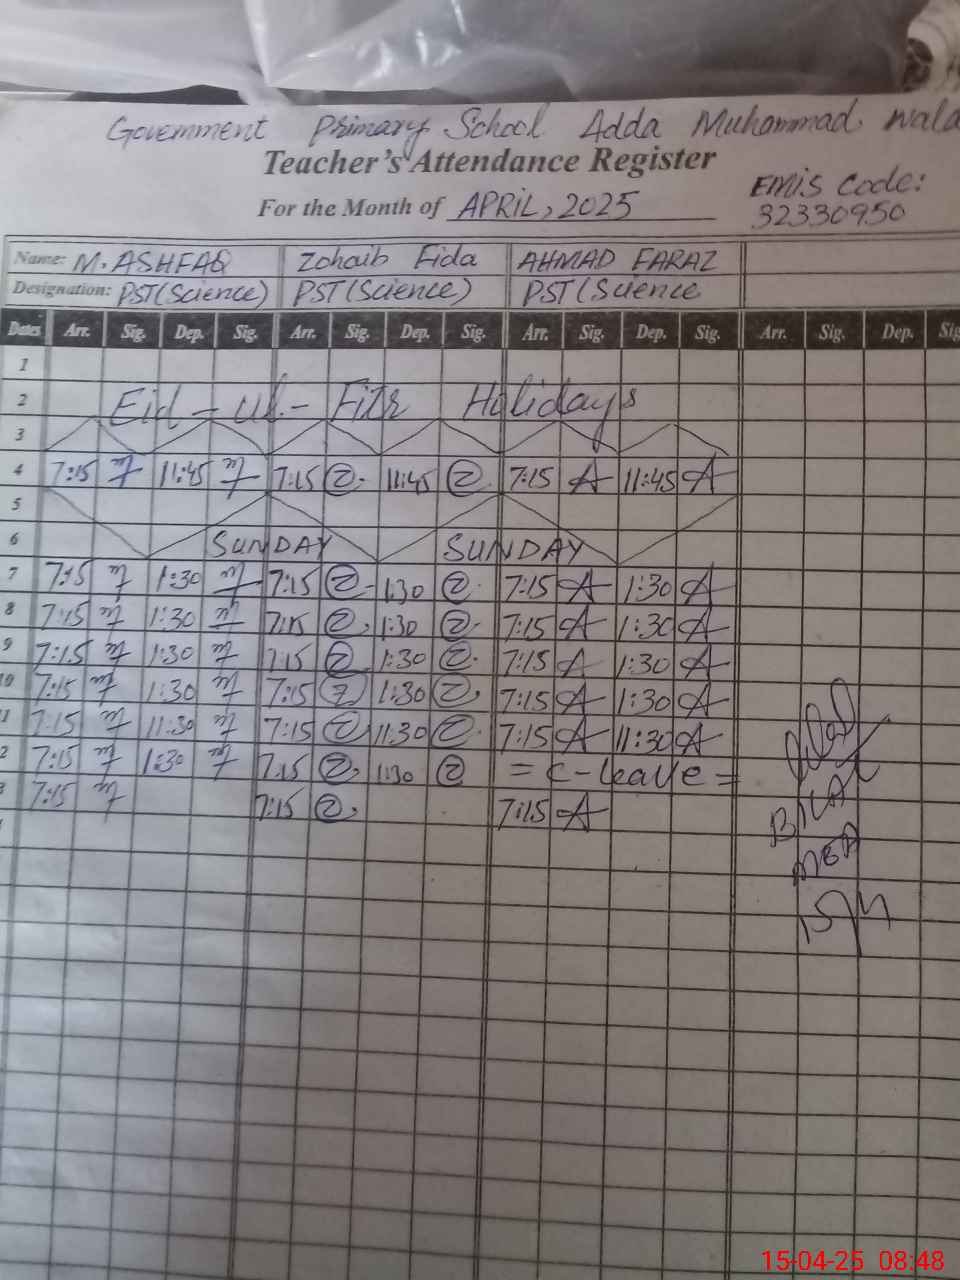 Government Primary School Adda Muhammad Wala
Teacher's Attendance Register
For the Month of APRIL, 2025
EMIS Code:
32330950
Name: M. ASHFAQ Zohaib Fida AHMAD FARAZ
Designation: PST (Science) PST (Science) PST (Science
Dates Arr. Sig. Dep. Sig. Arr. Sig. Dep. Sig. Arr. Sig. Dep. Sig. Arr. Sig. Dep. Sig
1
2 Eid-ul-Fitr Holidays
3
4 7:15 11:45 7:15 11:45 7:15 A 11:45 A
5
6 SUNDAY SUNDAY
7 7:15 1:30 7:15 1:30 7:15 A 1:30 A
8 7:15 1:30 7:15 1:30 7:15 A 1:30 A
9 7:15 1:30 7:15 1:30 7:15 A 1:30 A
10 7:15 1:30 7:15 1:30 7:15 A 1:30 A
1 7:15 11:30 7:15 11:30 7:15 A 11:30 A
2 7:15 1:30 7:15 1:30 = C-leave =
3 7:15 7:15 7:15 A
15-04-25 08:48